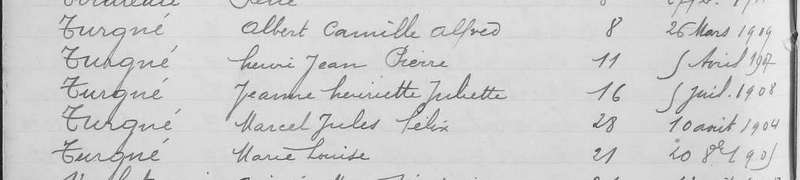 René
Turgné Albert Camille Alfred 8 26 Mars 1919
Turgné henri Jean Pierre 11 5 Avril 1907
Turgné Jeanne henriette Juliette 16 5 Juil. 1908
Turgné Marcel Jules Félix 28 10 août 1904
Turgné Marie Louise 21 20 8bre 1905